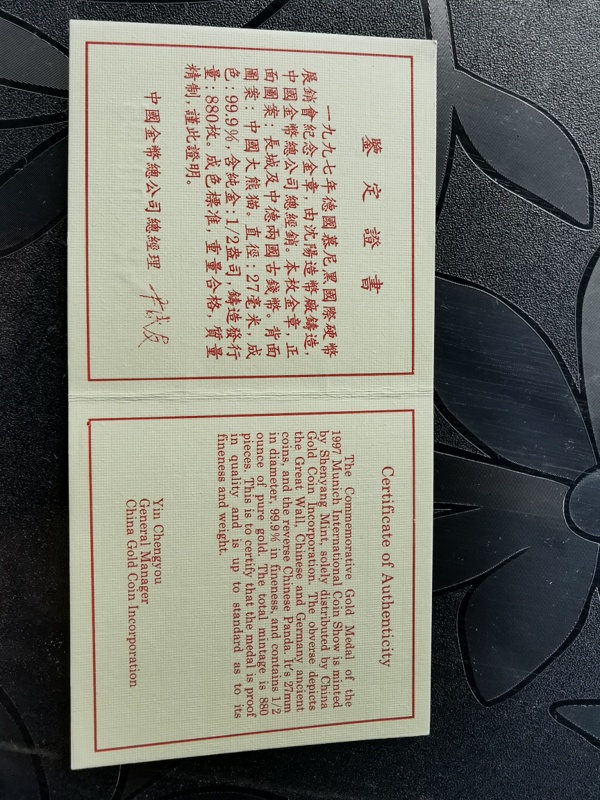 鑒定證書
一九九七年德國慕尼黑國際硬幣
展銷會紀念金章，由沈陽造幣廠鑄造，
中國金幣總公司總經銷。本枚金章，正
面圖案：長城及中德兩國古錢幣。背面
圖案：中國大熊猫。直徑：27毫米，成
色：99.9%，含純金：1/2盎司，鑄造發行
量：880枚。成色標准，重量合格，質量
精制，謹此證明。
中國金幣總公司總經理
Certificate of Authenticity
The Commemorative Gold Medal of the
1997 Munich International Coin Show is minted
by Shenyang Mint, solely distributed by China
Gold Coin Incorporation. The obverse depicts
the Great Wall, Chinese and Germany ancient
coins, and the reverse Chinese Panda. It's 27mm
in diameter, 99.9% in fineness, and contains 1/2
ounce of pure gold. The total mintage is 880
pieces. This is to certify that the medal is proof
in quality and is up to standard as to its
fineness and weight.
Yin Chengyou
General Manager
China Gold Coin Incorporation